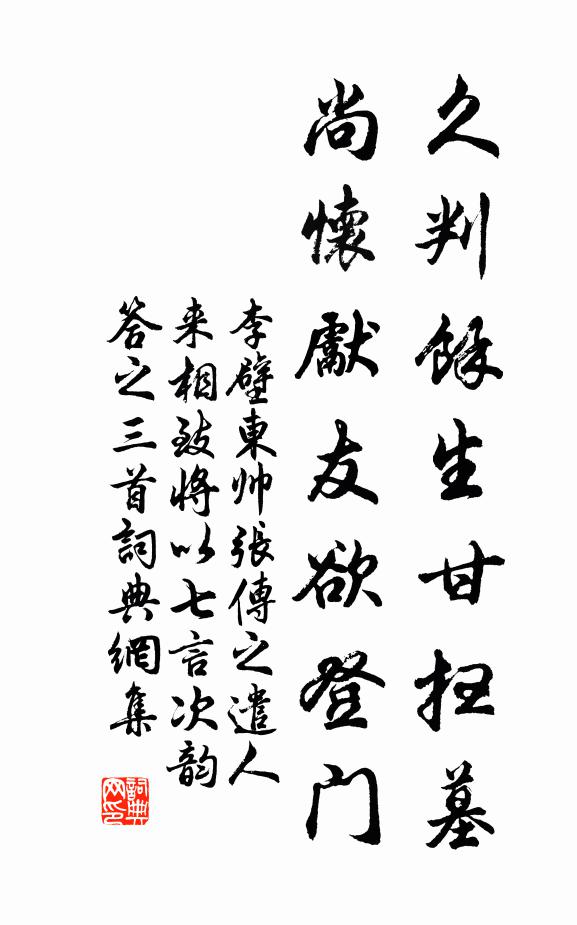 久判餘生甘扫墓
尚懷獻友欲登门
李壁東帅張傳之遣人
来相致將以七言次韵
答之三首詞典網集
詞典
网印